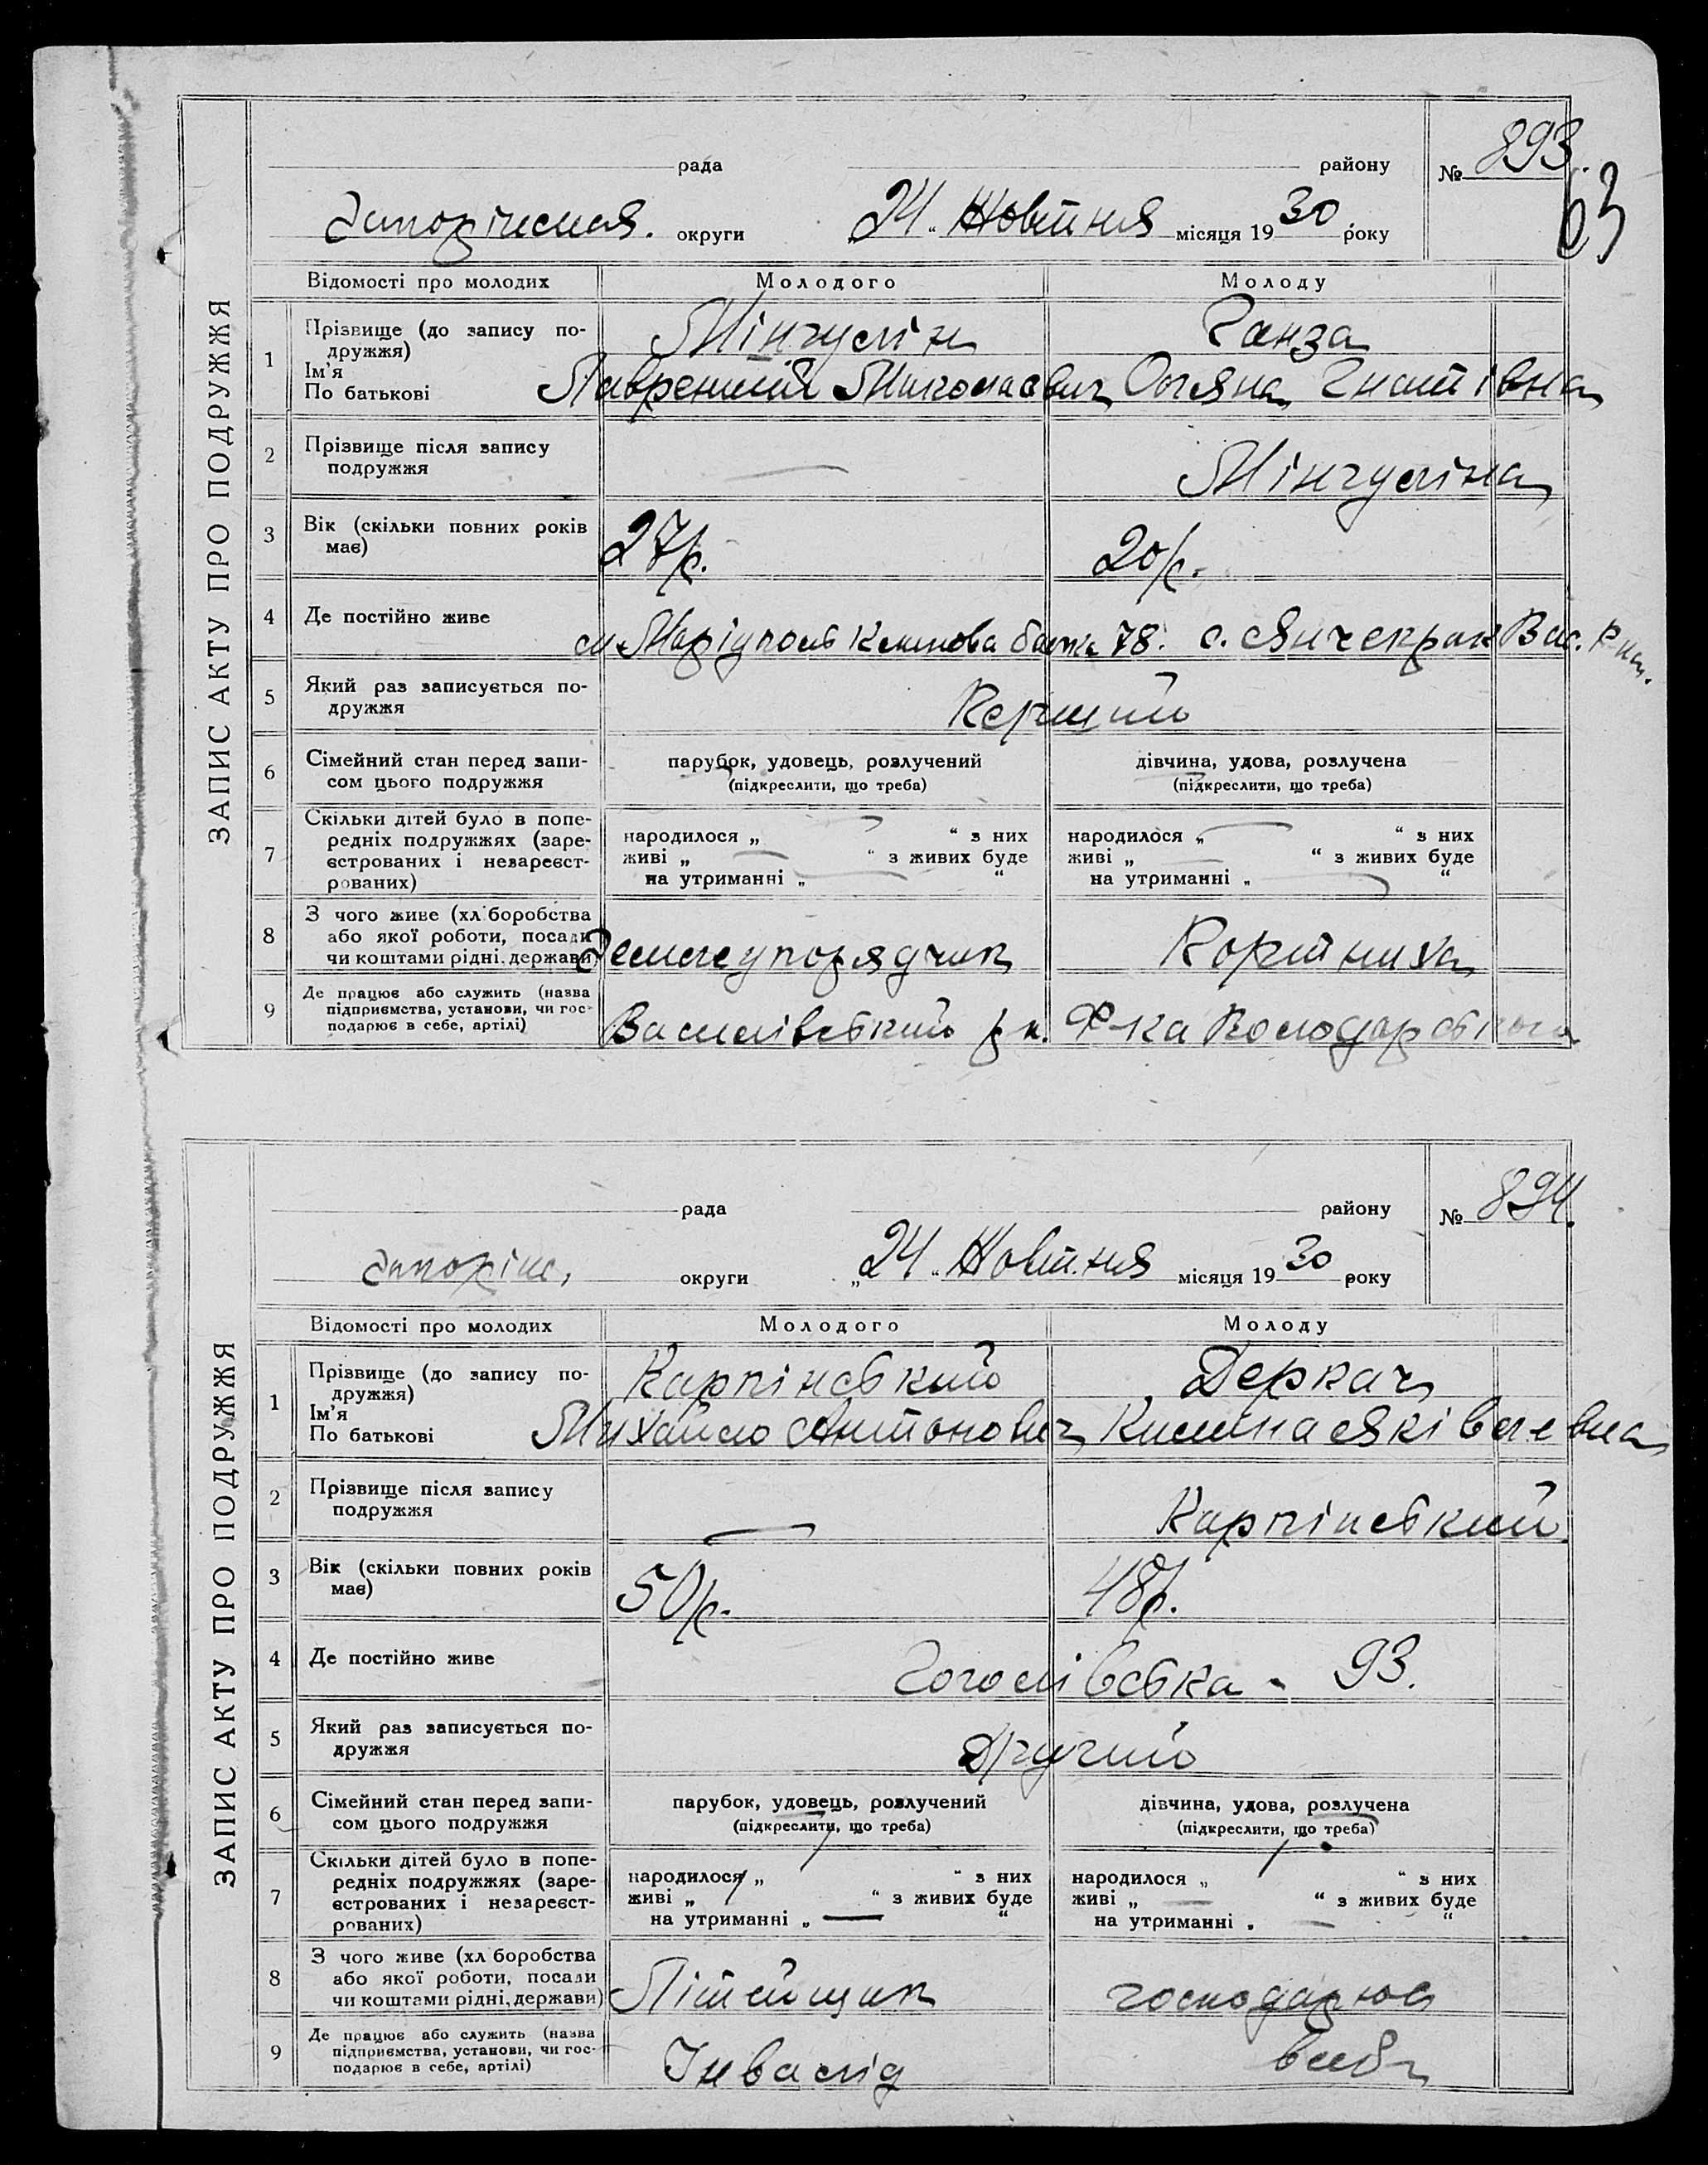 ЗАПИС АКТУ ПРО ПОДРУЖЖЯ
рада району № 893
63
округи „24“ Жовтня місяця 1930 року
Відомості про молодих Молодого Молоду
1 Прізвище (до запису по-
дружжя)
Ім'я
По батькові
Мінгулін Ганза
Лаврентій Миколаєвич Гнатівна
2 Прізвище після запису
подружжя
— Мінгуліна
3 Вік (скільки повних років
має)
27/р. 20/р.
4 Де постійно живе
м Маріуполь балка 78. с. Янчекрак Вас. р-на.
5 Який раз записується по-
дружжя
Перший
6 Сімейний стан перед запи-
сом цього подружжя
парубок, удовець, розлучений
(підкреслити, що треба)
дівчина, удова, розлучена
(підкреслити, що треба)
7 Скільки дітей було в попе-
редніх подружжях (заре-
єстрованих і незареєст-
рованих)
народилося „ — “ з них
живі „ — “ з живих буде
на утриманні „ — “
народилося „ — “ з них
живі „ — “ з живих буде
на утриманні „ — “
8 З чого живе (хліборобства
або якої роботи, посади
чи коштами рідні, держави)
Землеупорядчик
9 Де працює або служить (назва
підприємства, установи, чи гос-
подарює в себе, артілі)
Василівський рн. Ф-ка
ЗАПИС АКТУ ПРО ПОДРУЖЖЯ
рада району № 894.
Запоріж. округи „24“ Жовтня місяця 1930 року
Відомості про молодих Молодого Молоду
1 Прізвище (до запису по-
дружжя)
Ім'я
По батькові
Карпінський Деркач
Михайло Антонович Килина Яківлевна
2 Прізвище після запису
подружжя
— Карпінський
3 Вік (скільки повних років
має)
50/р. 48/р.
4 Де постійно живе
Гоголівська - 93.
5 Який раз записується по-
дружжя
Другий
6 Сімейний стан перед запи-
сом цього подружжя
парубок, удовець, розлучений
(підкреслити, що треба)
дівчина, удова, розлучена
(підкреслити, що треба)
7 Скільки дітей було в попе-
редніх подружжях (заре-
єстрованих і незареєст-
рованих)
народилося „ “ з них
живі „ “ з живих буде
на утриманні „ — “
народилося „ “ з них
живі „ — “ з живих буде
на утриманні „ — “
8 З чого живе (хліборобства
або якої роботи, посади
чи коштами рідні, держави)
Літейщик господарює
9 Де працює або служить (назва
підприємства, установи, чи гос-
подарює в себе, артілі)
Інвалід